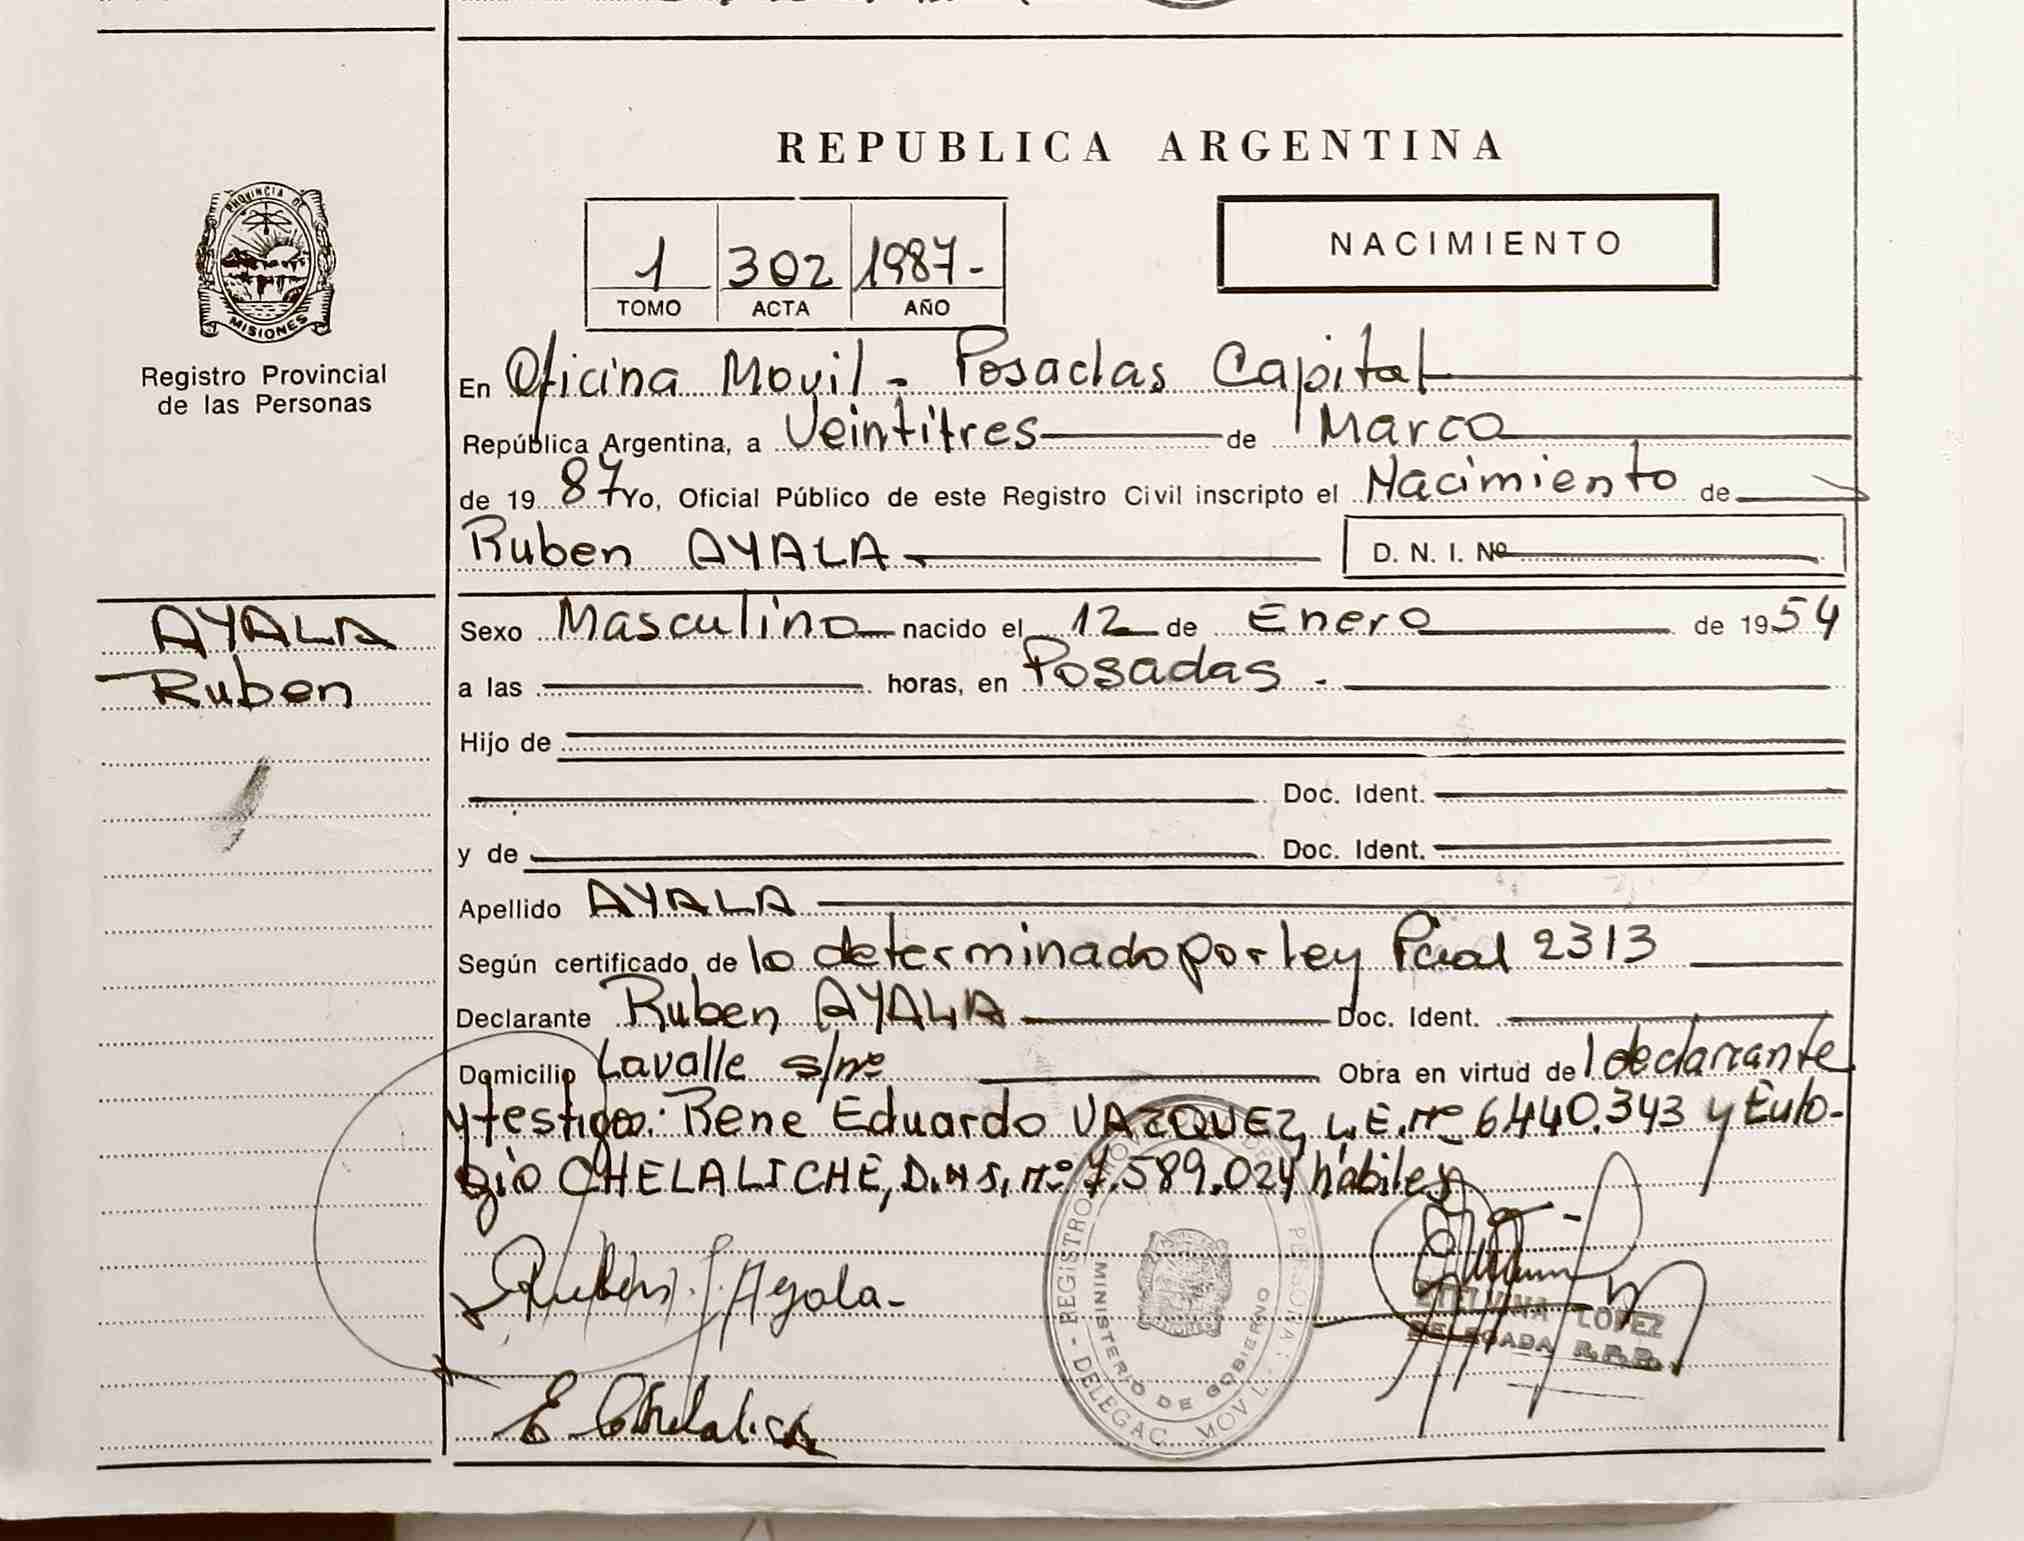 REPUBLICA ARGENTINA
PROVINCIA DE
MISIONES
Registro Provincial
de las Personas
1 302 1987-
TOMO ACTA AÑO
NACIMIENTO
En Oficina Movil - Posadas Capital
República Argentina, a Veintitres de Marzo
de 19 87 Yo, Oficial Público de este Registro Civil inscripto el Nacimiento de
Ruben AYALA D. N. I. Nº
AYALA
Ruben
Sexo Masculino nacido el 12 de Enero de 1954
a las horas, en Posadas.
Hijo de
Doc. Ident.
y de Doc. Ident.
Apellido AYALA
Según certificado de lo determinado por ley Pcial 2313
Declarante Ruben AYALA Doc. Ident.
Domicilio Lavalle s/nº Obra en virtud de l declarante
y testigos: Rene Eduardo VAZQUEZ, L.E. nº 6.440.343 y Eulo-
gio CHELALICHE, D.N.I. nº 7.589.024 hábiles
Ruben Ayala-
REGISTRO PERSONAS
MINISTERIO DE GOBIERNO
DELEGAC. MOVIL
ETELVINA LOPEZ
DELEGADA R.P.P.
E Chelalich